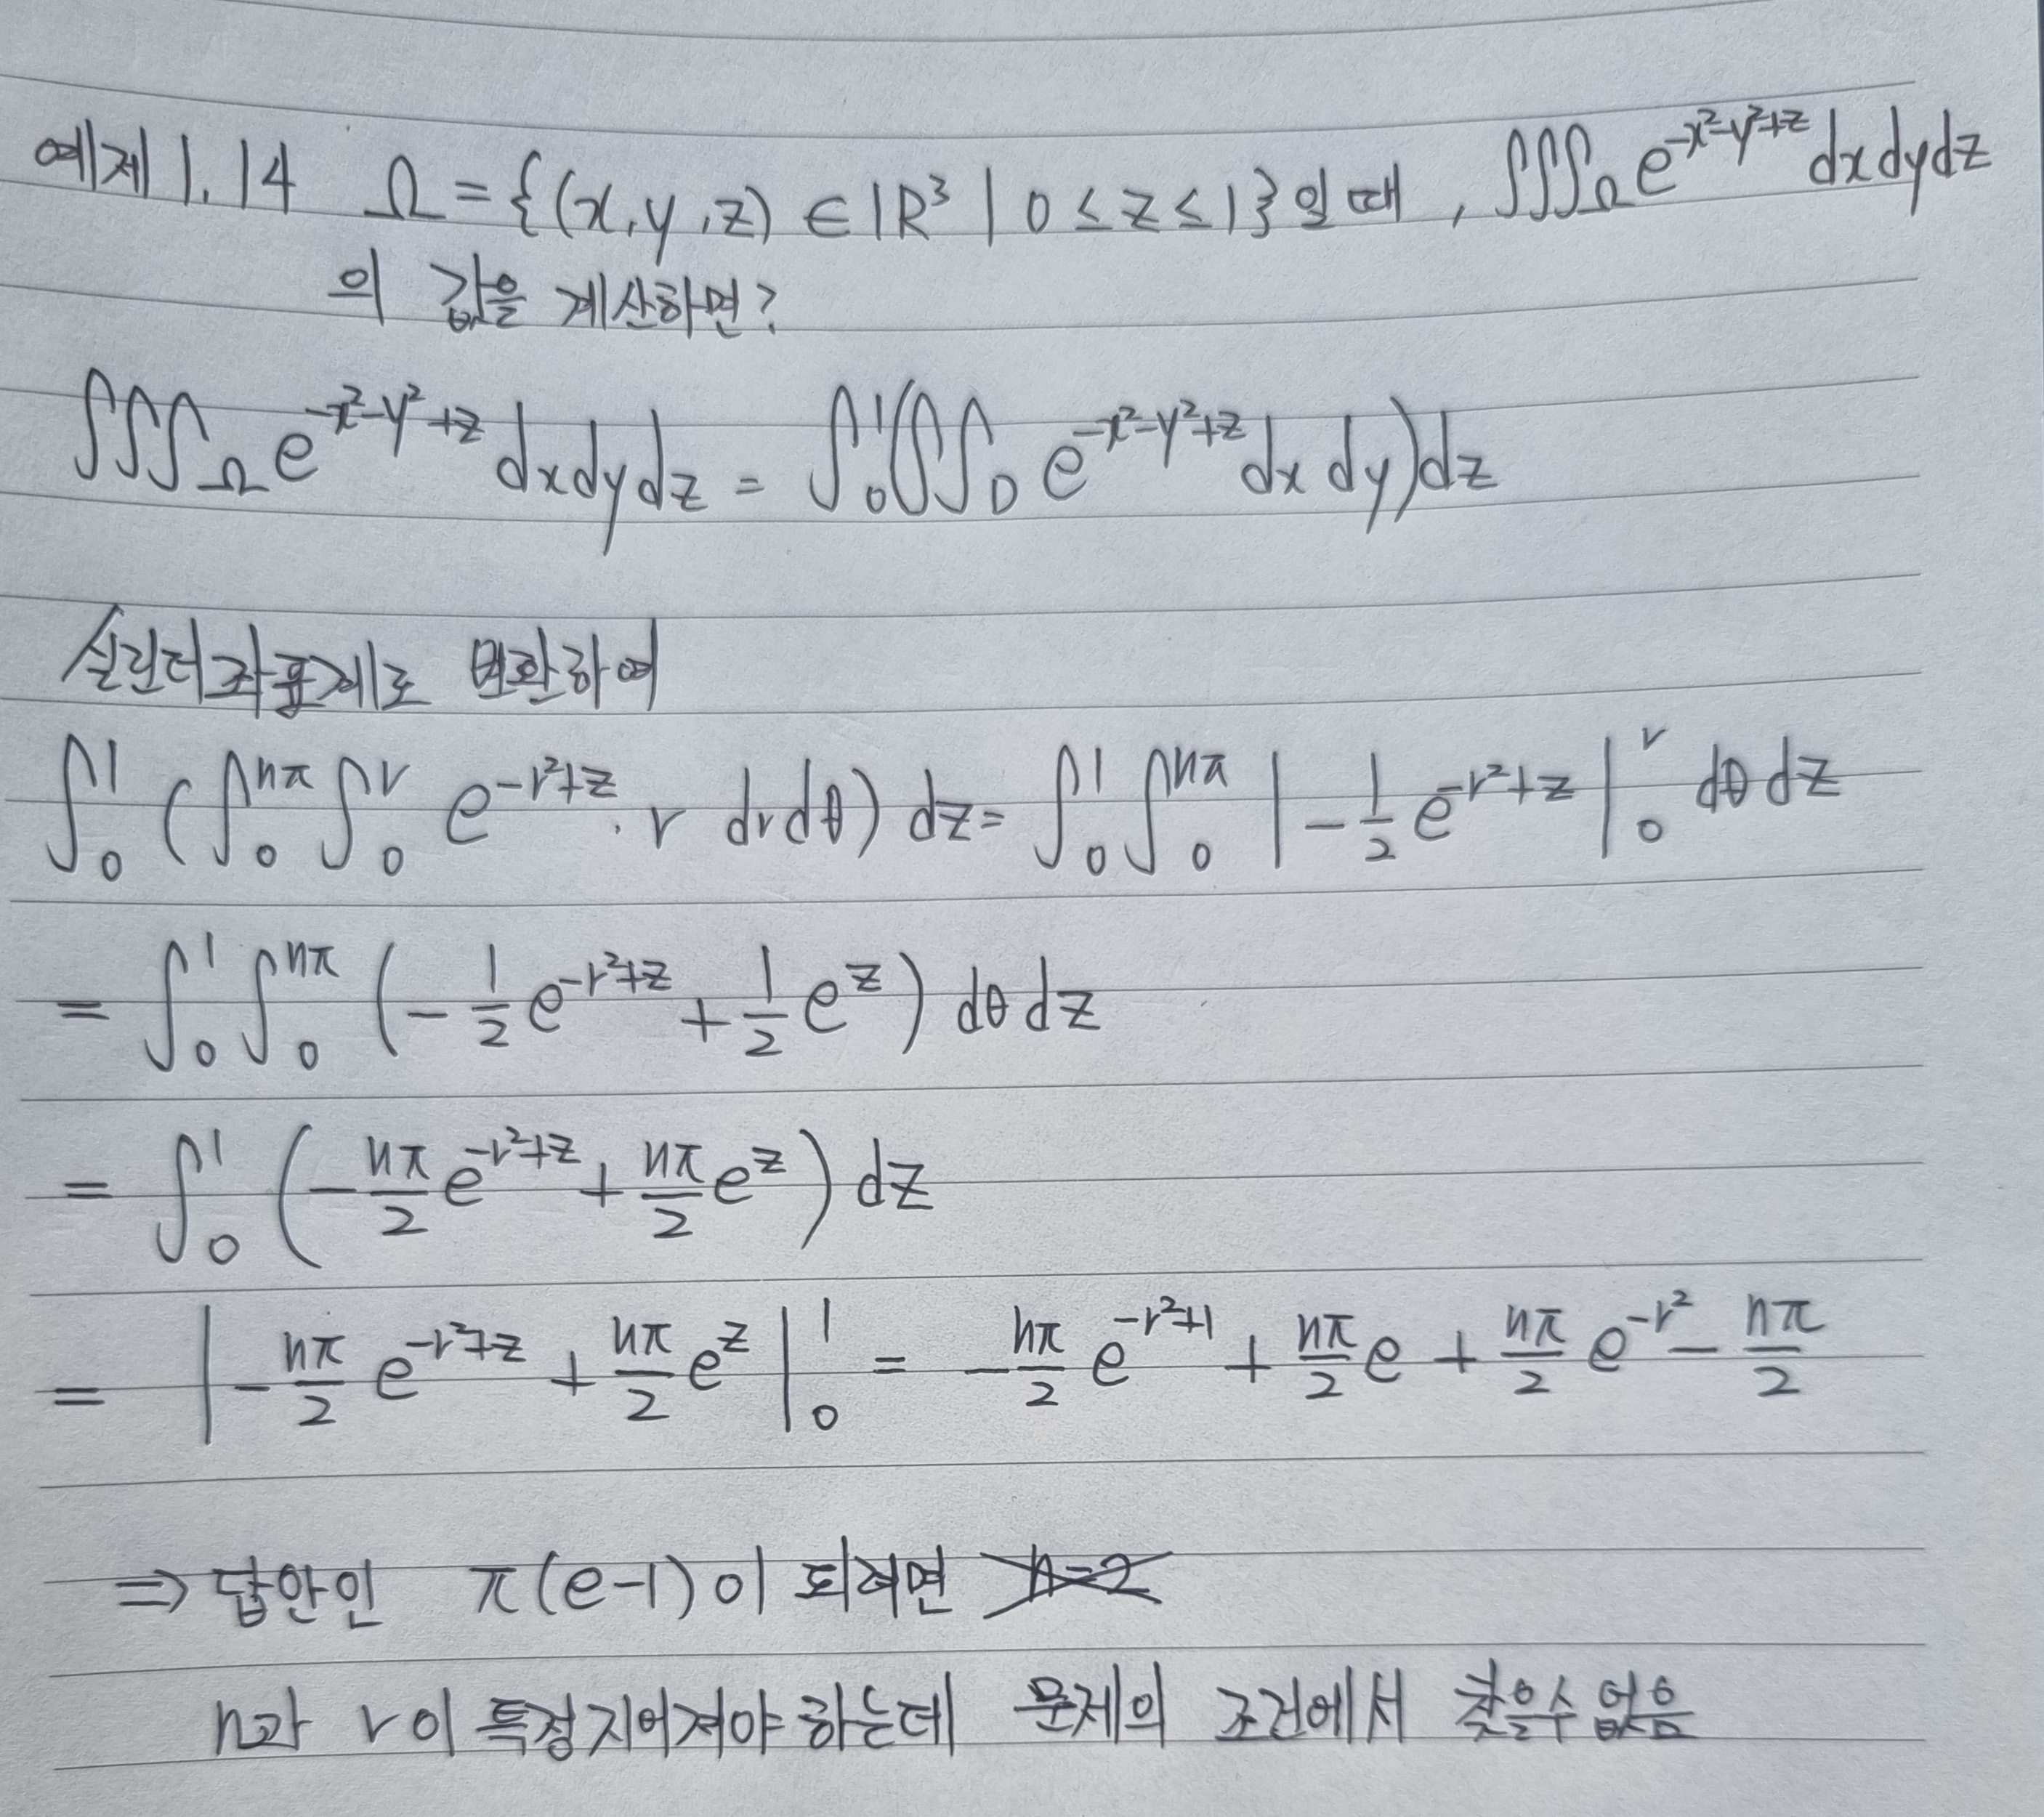 예제 1.14 Ω = {(x, y, z) ∈ ℝ³ | 0 ≤ z ≤ 1} 일 때, ∭_Ω e^{-x²-y²+z} dxdydz
의 값을 계산하면?
∭_Ω e^{-x²-y²+z} dxdydz = ∫₀¹(∬_D e^{-x²-y²+z} dx dy)dz
실린더좌표계로 변환하여
∫₀¹ (∫₀^{nπ} ∫₀^r e^{-r²+z} · r drdθ) dz = ∫₀¹ ∫₀^{nπ} | -1/2 e^{-r²+z} |₀^r dθ dz
= ∫₀¹ ∫₀^{nπ} (-1/2 e^{-r²+z} + 1/2 e^z) dθ dz
= ∫₀¹ (-nπ/2 e^{-r²+z} + nπ/2 e^z) dz
= | -nπ/2 e^{-r²+z} + nπ/2 e^z |₀¹ = -nπ/2 e^{-r²+1} + nπ/2 e + nπ/2 e^{-r²} - nπ/2
⇒ 답안인 π(e-1)이 되려면 n=2
n과 r이 특정지어져야 하는데 문제의 조건에서 찾을수 없음